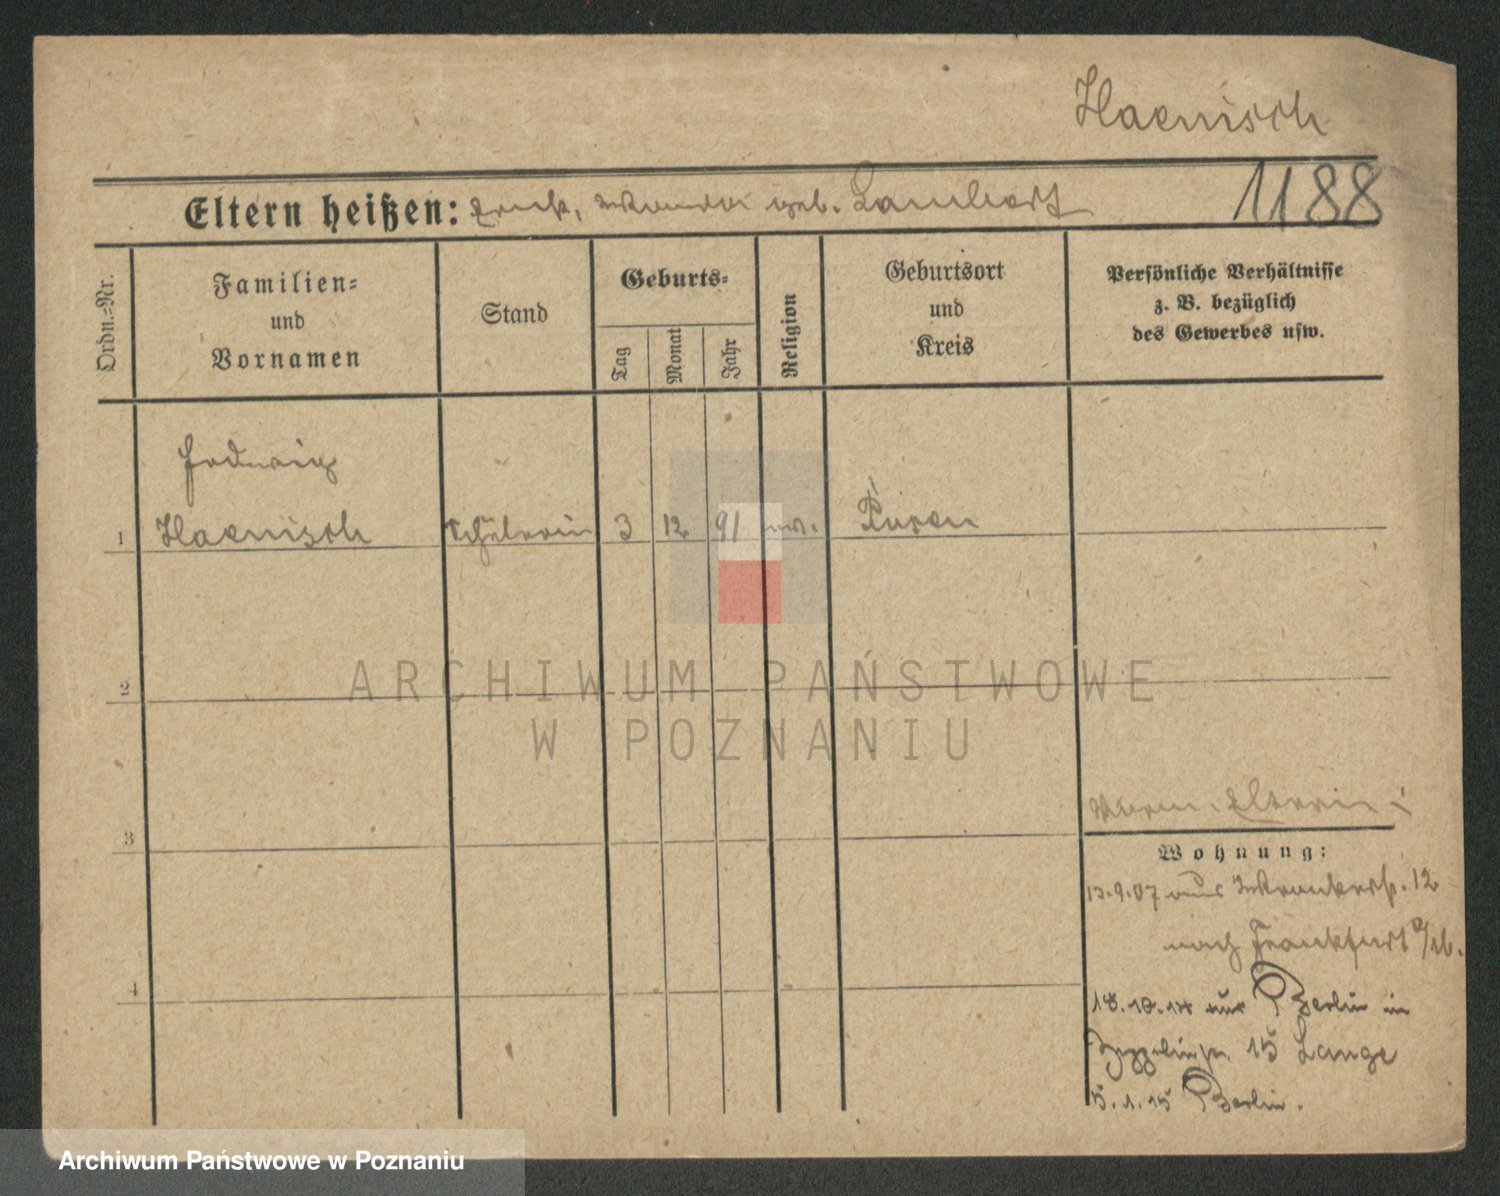 Haenisch
1188
Eltern heißen: Ernst, Wanda geb. Lambert
Ordn.-Nr.
Familien-
und
Vornamen
Stand
Geburts-
Tag
Monat
Jahr
Religion
Geburtsort
und
Kreis
Persönliche Verhältnisse
z. B. bezüglich
des Gewerbes usw.
Hedwig
1 Haenisch Schülerin 3 12 91 ev. Posen
2
3
4
Eltern
Wohnung:
13.9.07 aus 12
nach Frankfurt a/M.
18.10.14 aus Berlin in
Zeppelinstr. 15 Lange
5.1.15 Berlin.
ARCHIWUM PAŃSTWOWE
W POZNANIU
Archiwum Państwowe w Poznaniu